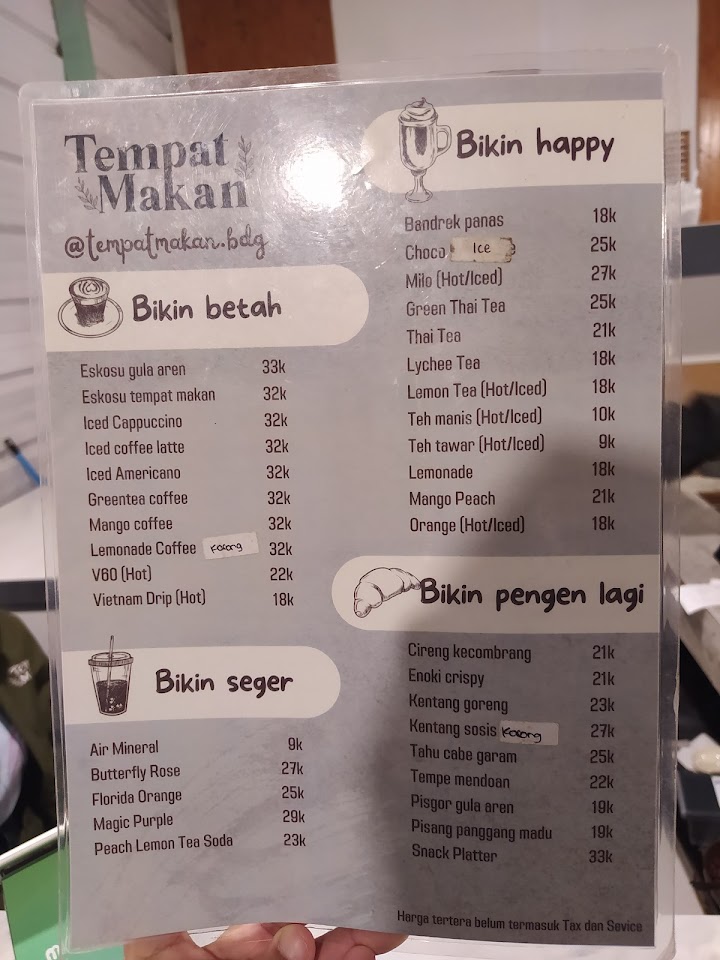 Tempat
Makan
@tempatmakan.bdg
Bikin betah
Eskosu gula aren 33k
Eskosu tempat makan 32k
Iced Cappuccino 32k
Iced coffee latte 32k
Iced Americano 32k
Greentea coffee 32k
Mango coffee 32k
Lemonade Coffee Kosong 32k
V60 (Hot) 22k
Vietnam Drip (Hot) 18k
Bikin seger
Air Mineral 9k
Butterfly Rose 27k
Florida Orange 25k
Magic Purple 29k
Peach Lemon Tea Soda 23k
Bikin happy
Bandrek panas 18k
Choco Ice 25k
Milo (Hot/Iced) 27k
Green Thai Tea 25k
Thai Tea 21k
Lychee Tea 18k
Lemon Tea (Hot/Iced) 18k
Teh manis (Hot/Iced) 10k
Teh tawar (Hot/Iced) 9k
Lemonade 18k
Mango Peach 21k
Orange (Hot/Iced) 18k
Bikin pengen lagi
Cireng kecombrang 21k
Enoki crispy 21k
Kentang goreng 23k
Kentang sosis Kosong 27k
Tahu cabe garam 25k
Tempe mendoan 22k
Pisgor gula aren 19k
Pisang panggang madu 19k
Snack Platter 33k
Harga tertera belum termasuk Tax dan Sevice